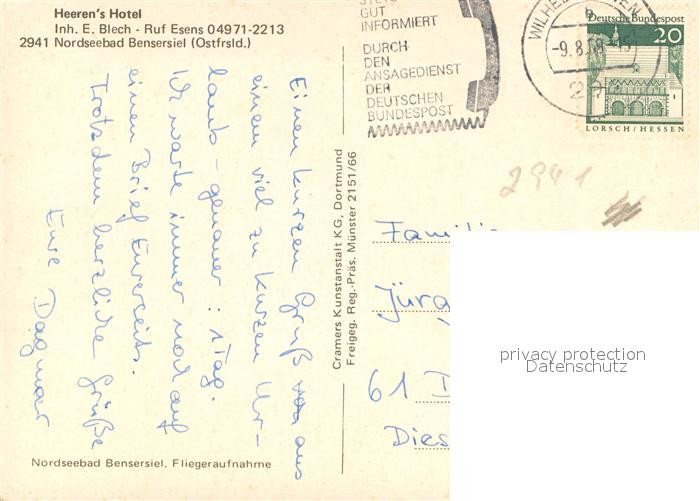 Heeren's Hotel
Inh. E. Blech - Ruf Esens 04971-2213
2941 Nordseebad Bensersiel (Ostfrsld.)
Einen kurzen Gruß von aus
einem viel zu kurzen Ur-
laub - genauer: 1 Tag.
Ich warte immer noch auf
einen Brief Eurerseits.
Trotzdem herzliche Grüße
Eure Dagmar
Nordseebad Bensersiel. Fliegeraufnahme
Cramers Kunstanstalt KG, Dortmund
Freigeg. Reg.-Präs. Münster 2151/66
STETS
GUT
INFORMIERT
DURCH
DEN
ANSAGEDIENST
DER
DEUTSCHEN
BUNDESPOST
-9.8.
Deutsche Bundespost
20
LORSCH/HESSEN
2941
Familie
Jürg
61 D
Dies
privacy protection
Datenschutz